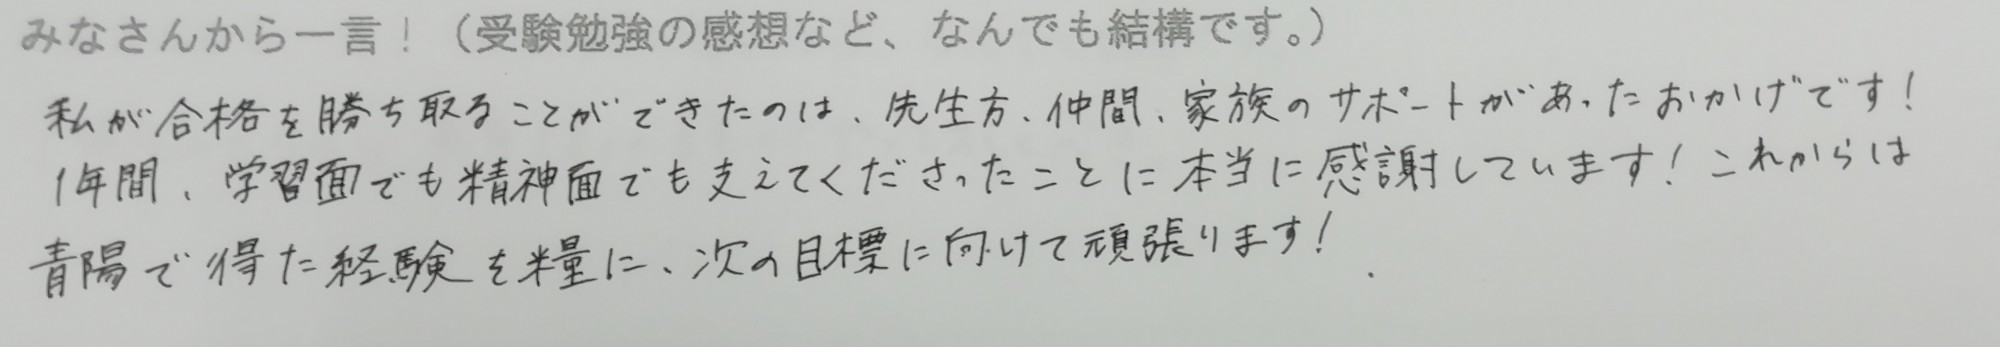 みなさんから一言！（受験勉強の感想など、なんでも結構です。）
私が合格を勝ち取ることができたのは、先生方、仲間、家族のサポートがあったおかげです！
1年間、学習面でも精神面でも支えてくださったことに本当に感謝しています！これからは
青陽で得た経験を糧に、次の目標に向けて頑張ります！